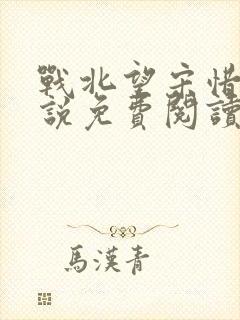 戰北望宋惜
說免費閱讀
馬漢青